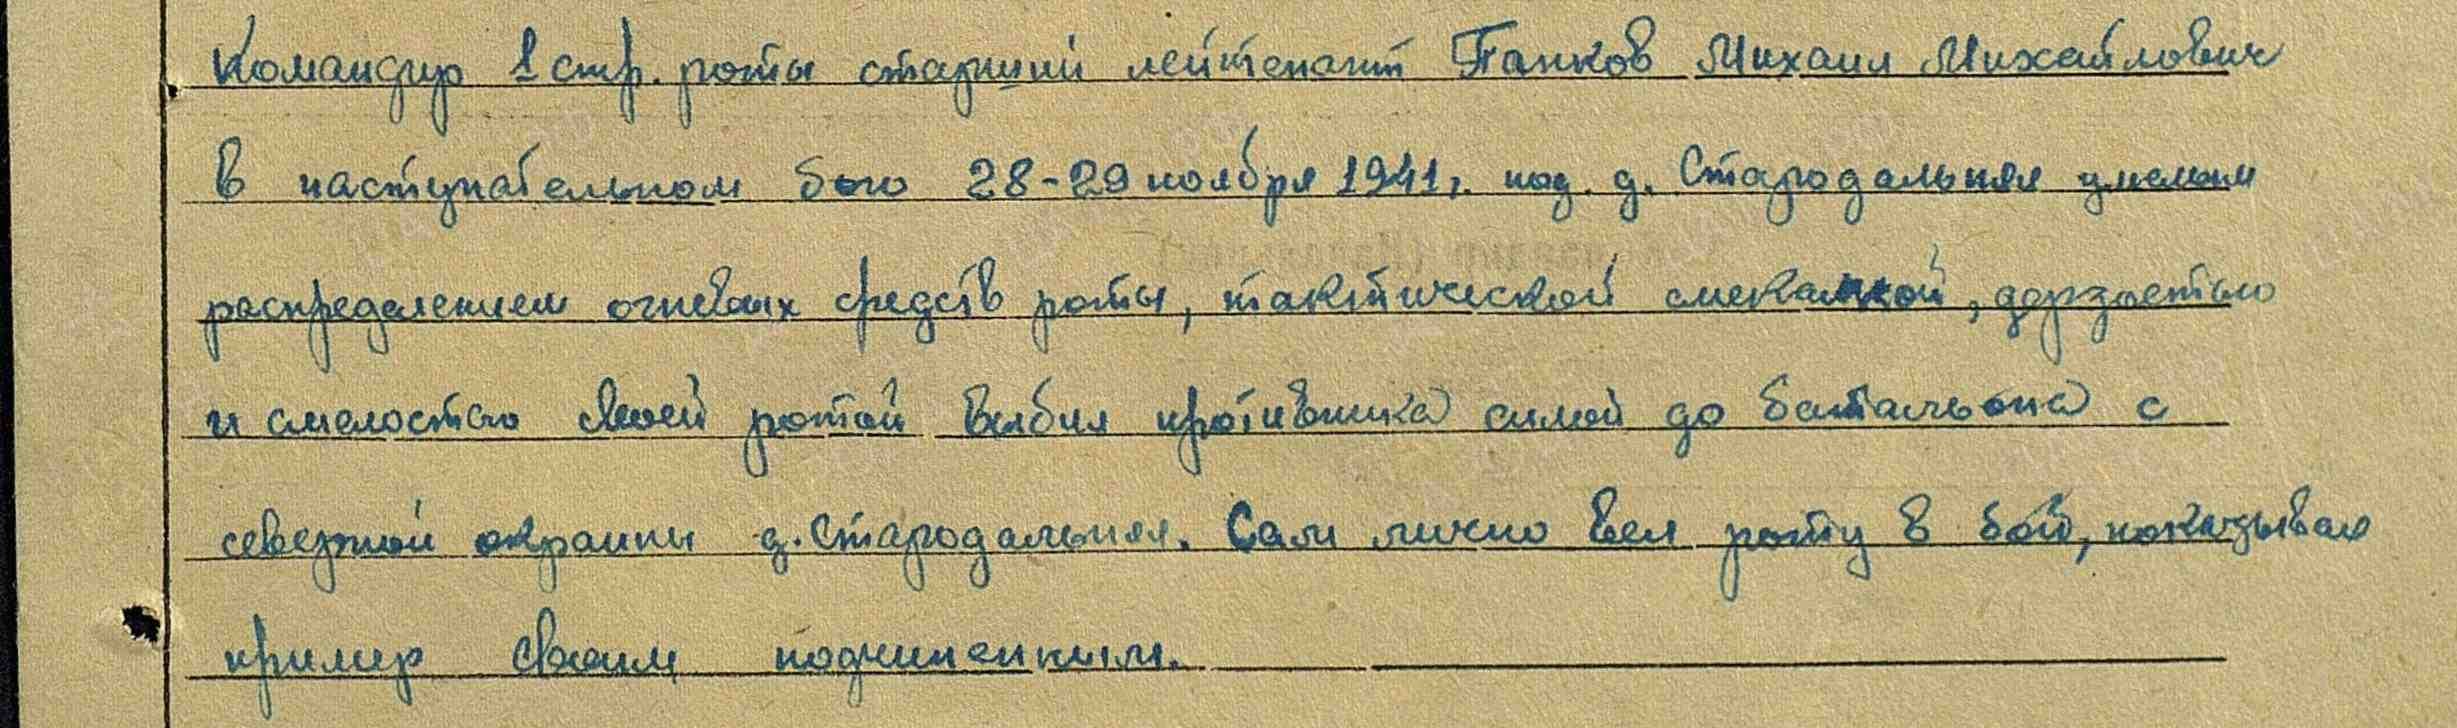 Командир 1 стр. роты старший лейтенант Панков Михаил Михайлович
в наступательном бою 28-29 ноября 1941г. под д. Стародальняя умелым
распределением огневых средств роты, тактической смекалкой, дерзостью
и смелостью своей ротой выбил противника силой до батальона с
северной окраины д. Стародальняя. Сам лично вел роту в бой, показывая
пример своим подчиненным.